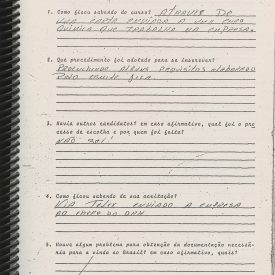 1. Como ficou sabendo do curso? ATRAVES DE
UMA CARTA ENVIADA A UMA
QUIMICA QUE TRABALHO NA EMPRESA.
2. Que procedimento foi adotado para se inscrever?
PREENCHENDO ALGUNS REQUISITOS
3. Havia outros candidatos? em caso afirmativo, qual foi o pro
cesso de escolha e por quem foi feito?
NÃO SEI!
4. Como ficou sabendo da sua aceitação?
VIA TELEX ENVIADO A EMPRESA
AO CHEFE DO
5. Houve algum problema para obtenção da documentação necessá-
ria para a vinda ao Brasil? Em caso afirmativo, quais?